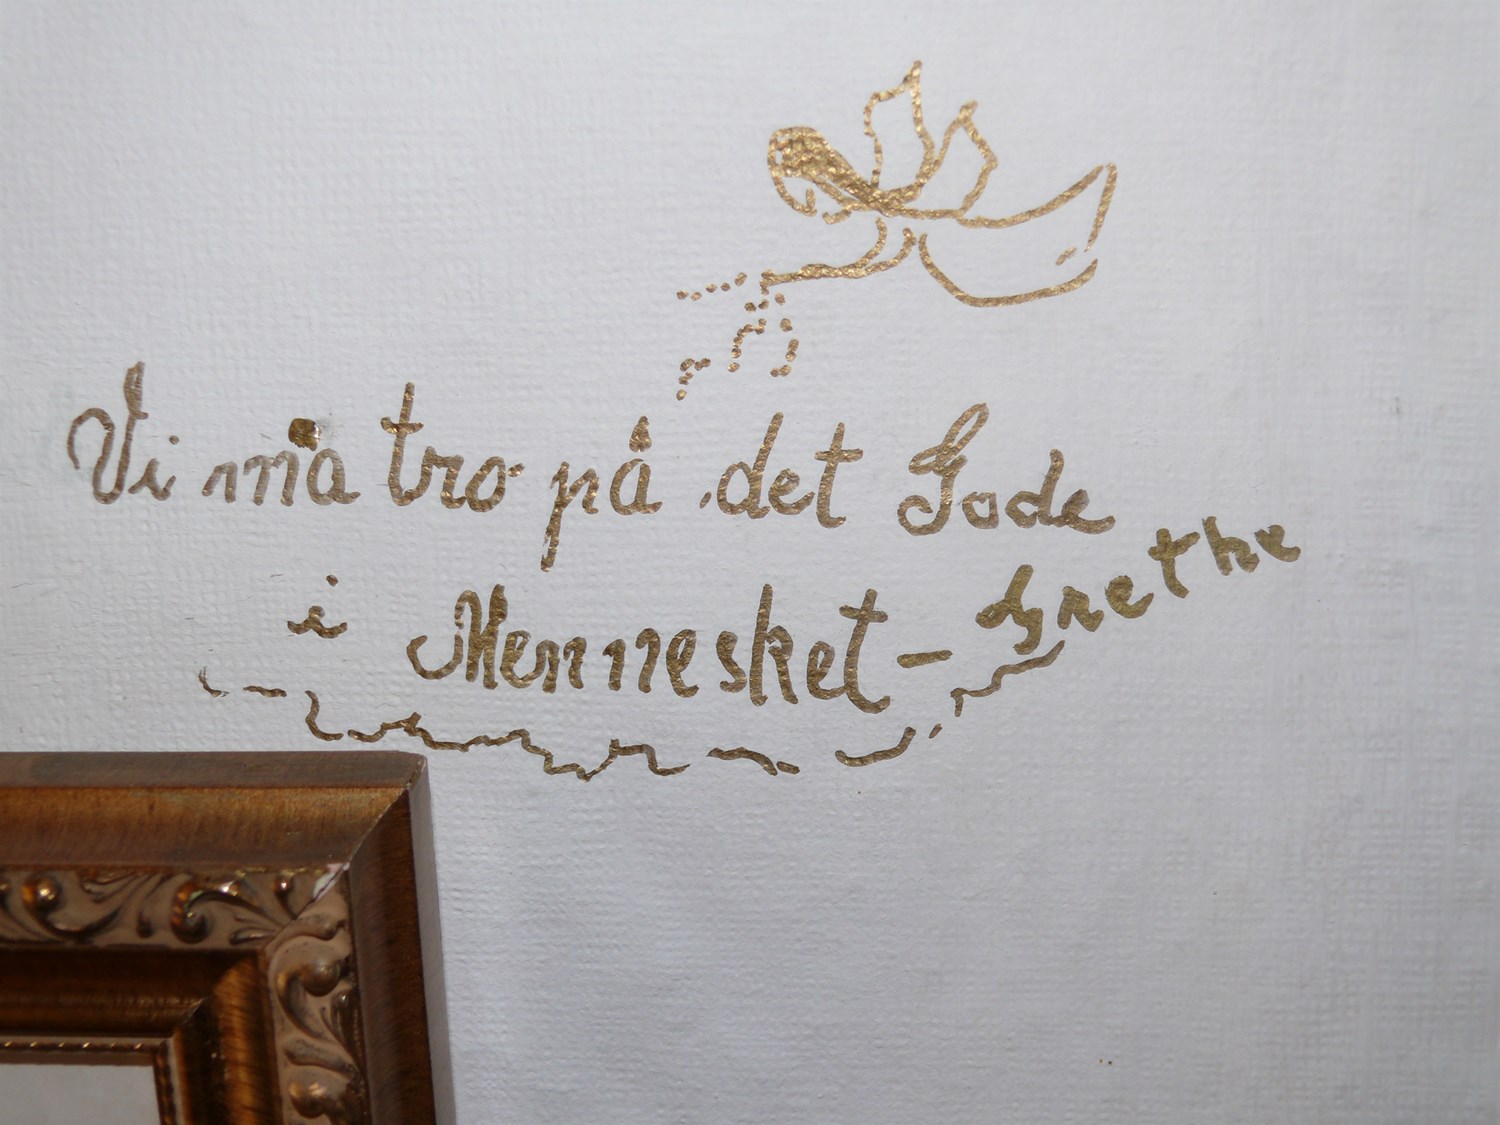 Vi må tro på det Gode
i Mennesket - Grethe